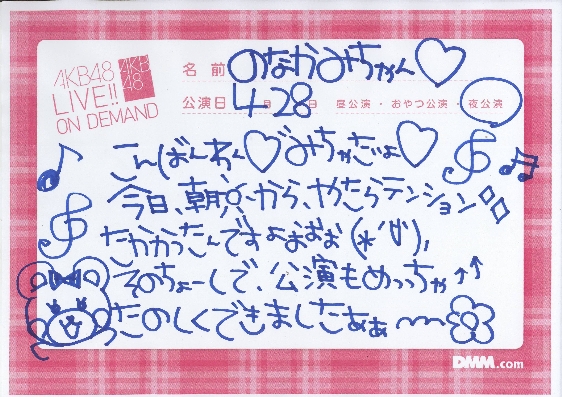 AKB48
LIVE!!
ON DEMAND
AKB
48
名前 のなかみちゃん♡
公演日 4月28日 昼公演・おやつ公演・夜公演
こんばんわん♡みちゃだょ♡
今日、朝から、やたらテンション
たかかったんですよおぉぉ(*´∀`),
そのちょーしで、公演もめっちゃ↑↑
たのしくできましたぁぁ〜
DMM.com